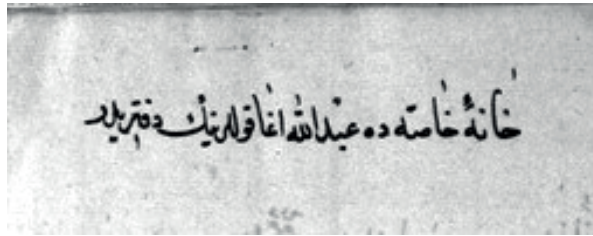 خانهٔ خاصه ده عبدالله اغا قوللرينك دفتريدر